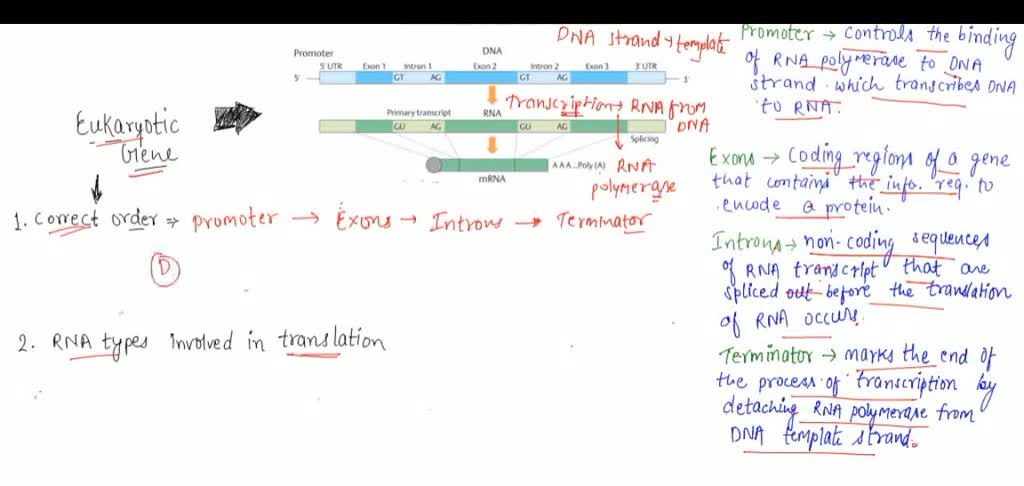 Promoter
DNA
5' UTR Exon 1 Intron 1 Exon 2 Intron 2 Exon 3 3' UTR
5' GT AG GT AG 3'
Primary transcript RNA
GU AG GU AG
Splicing
AAA...Poly (A)
mRNA
DNA strand → template
Transcription → RNA from
DNA
RNA
polymerase
Eukaryotic
Gene
1. Correct order ⇒ promoter → Exons → Introns → Terminator
D
2. RNA types involved in translation
Promoter → controls the binding
of RNA polymerase to DNA
strand which transcribes DNA
to RNA.
Exons → Coding regions of a gene
that contains the info. req. to
encode a protein.
Introns → non-coding sequences
of RNA transcript that are
spliced out before the translation
of RNA occurs.
Terminator → marks the end of
the process of transcription by
detaching RNA polymerase from
DNA template strand.